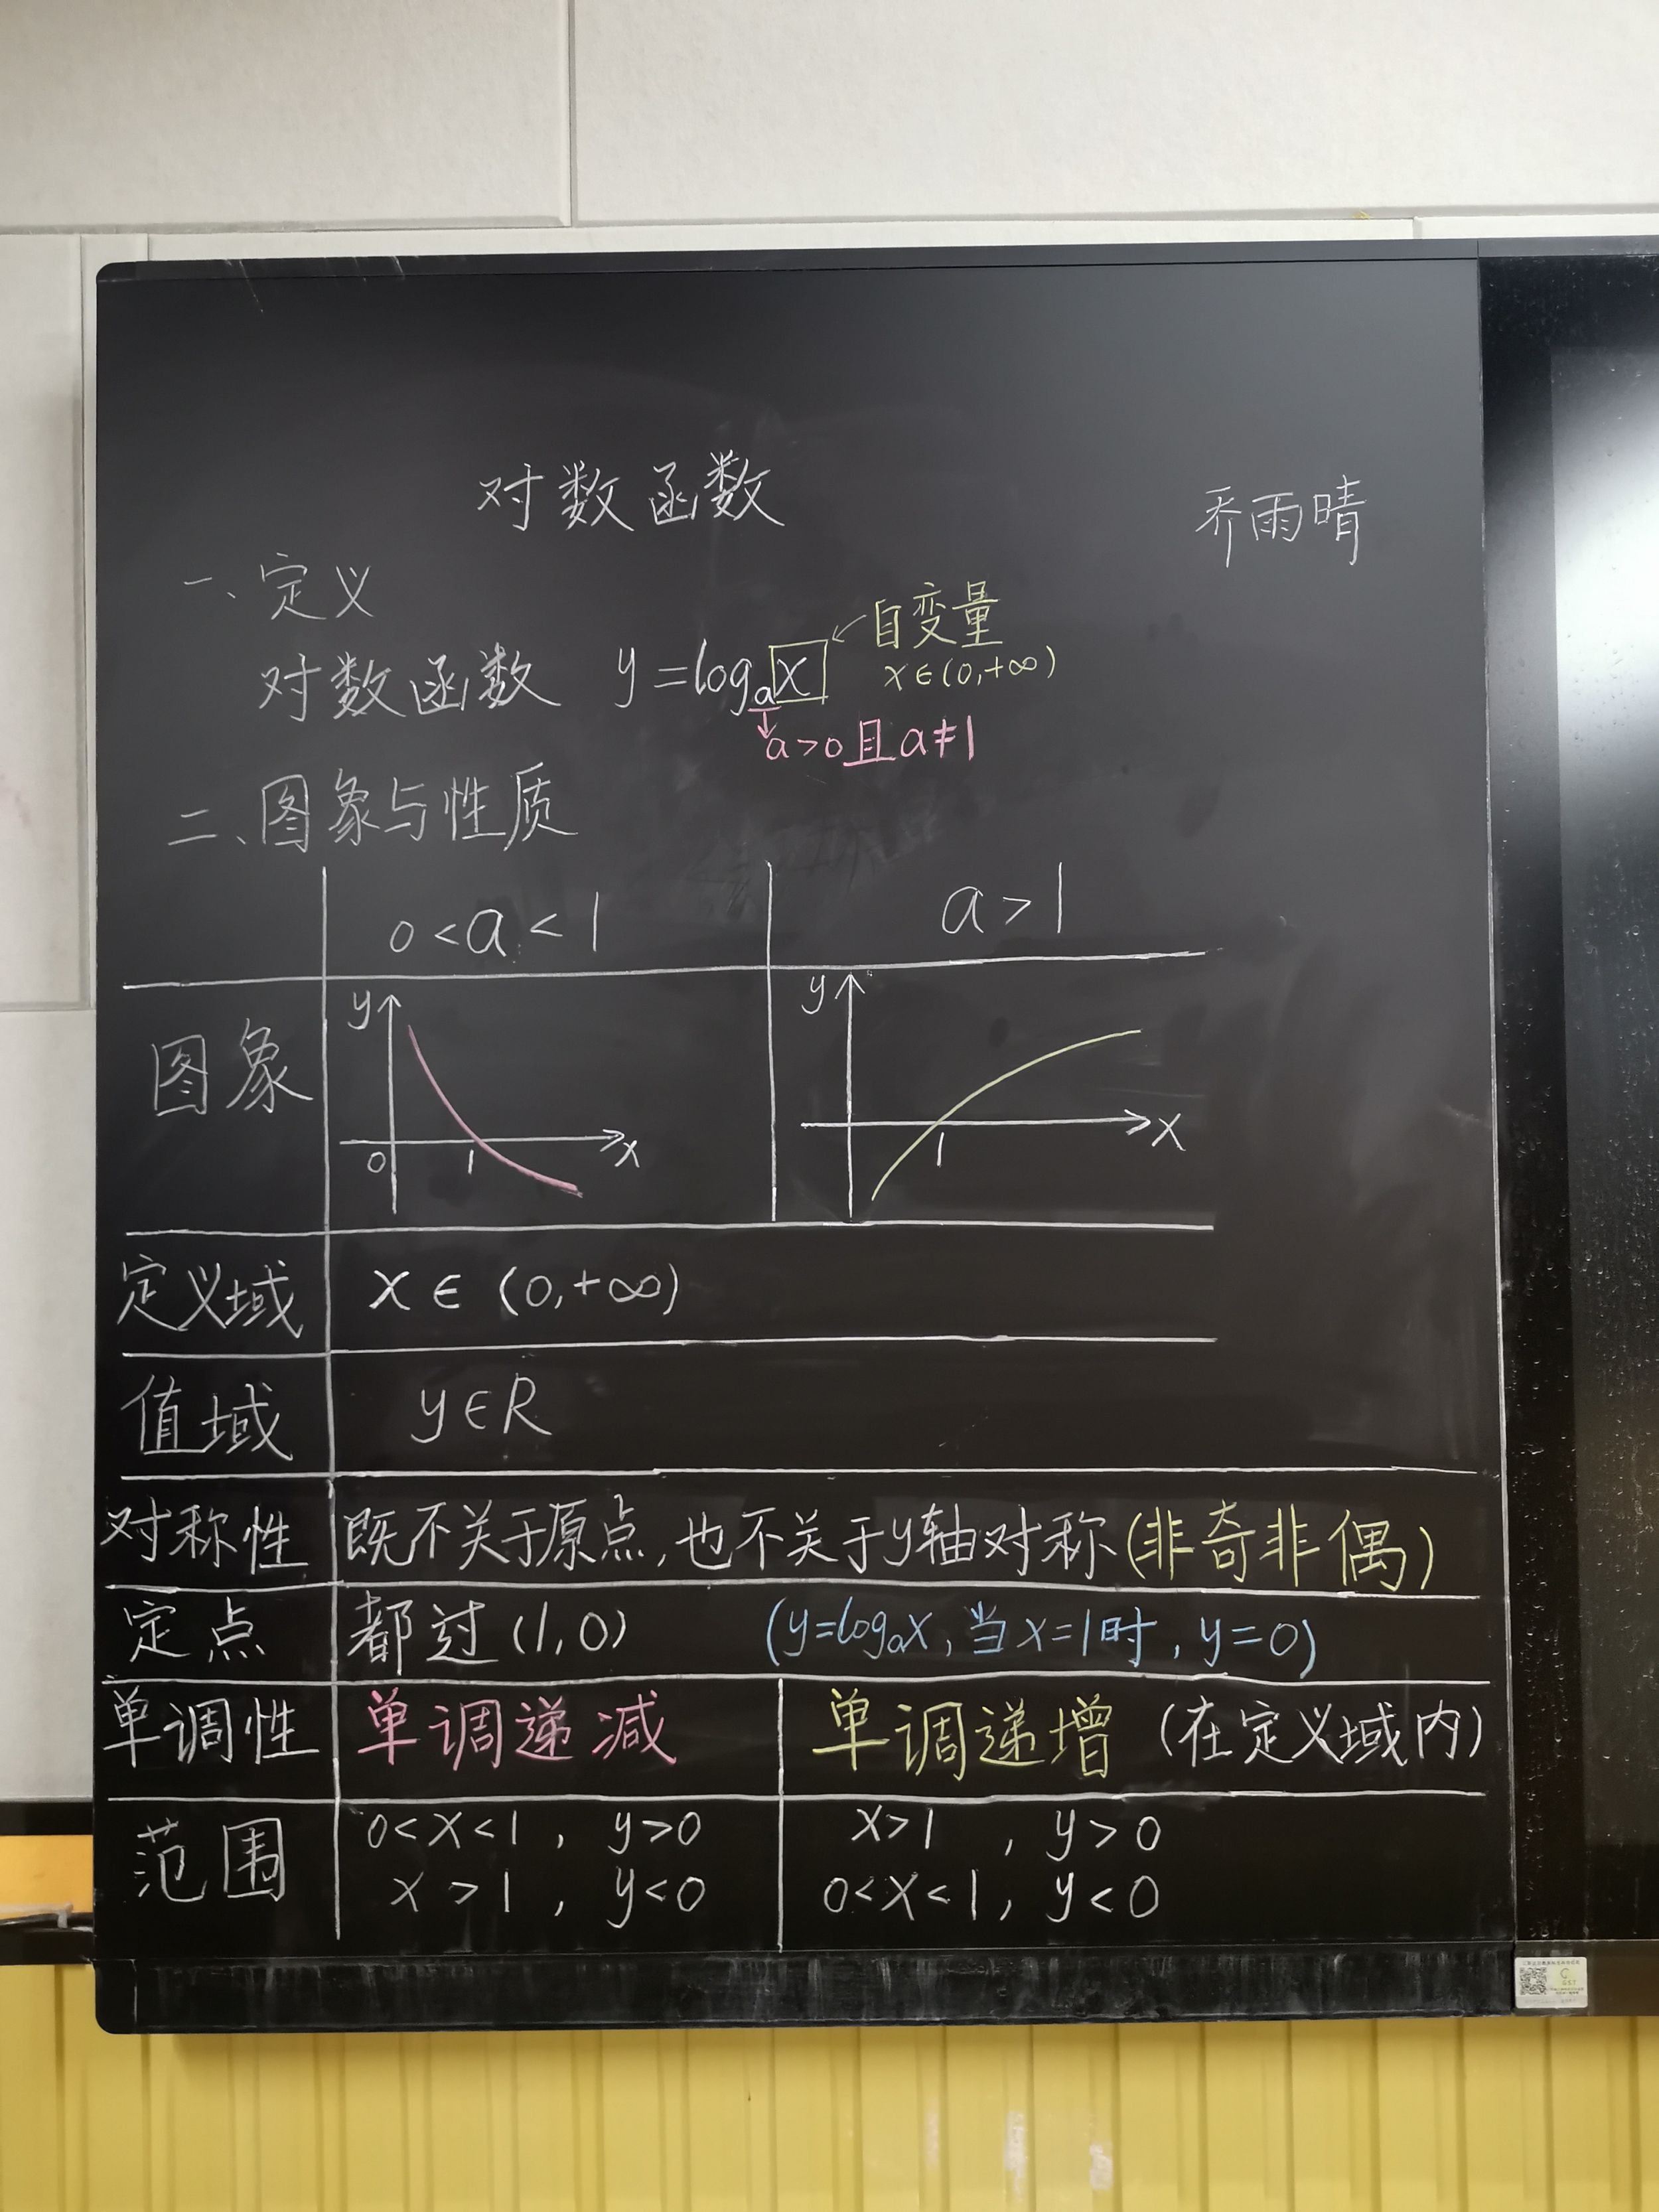 对数函数
乔雨晴
一、定义
对数函数 y=logₐx ← 自变量
x∈(0,+∞)
a>0且a≠1
二、图象与性质
0<a<1 a>1
图象 y 0 1 x y 1 x
定义域 x∈(0,+∞)
值域 y∈R
对称性 既不关于原点,也不关于y轴对称(非奇非偶)
定点 都过(1,0) (y=logₐx,当x=1时,y=0)
单调性 单调递减 单调递增 (在定义域内)
范围 0<x<1,y>0 x>1,y>0
x>1,y<0 0<x<1,y<0
GST